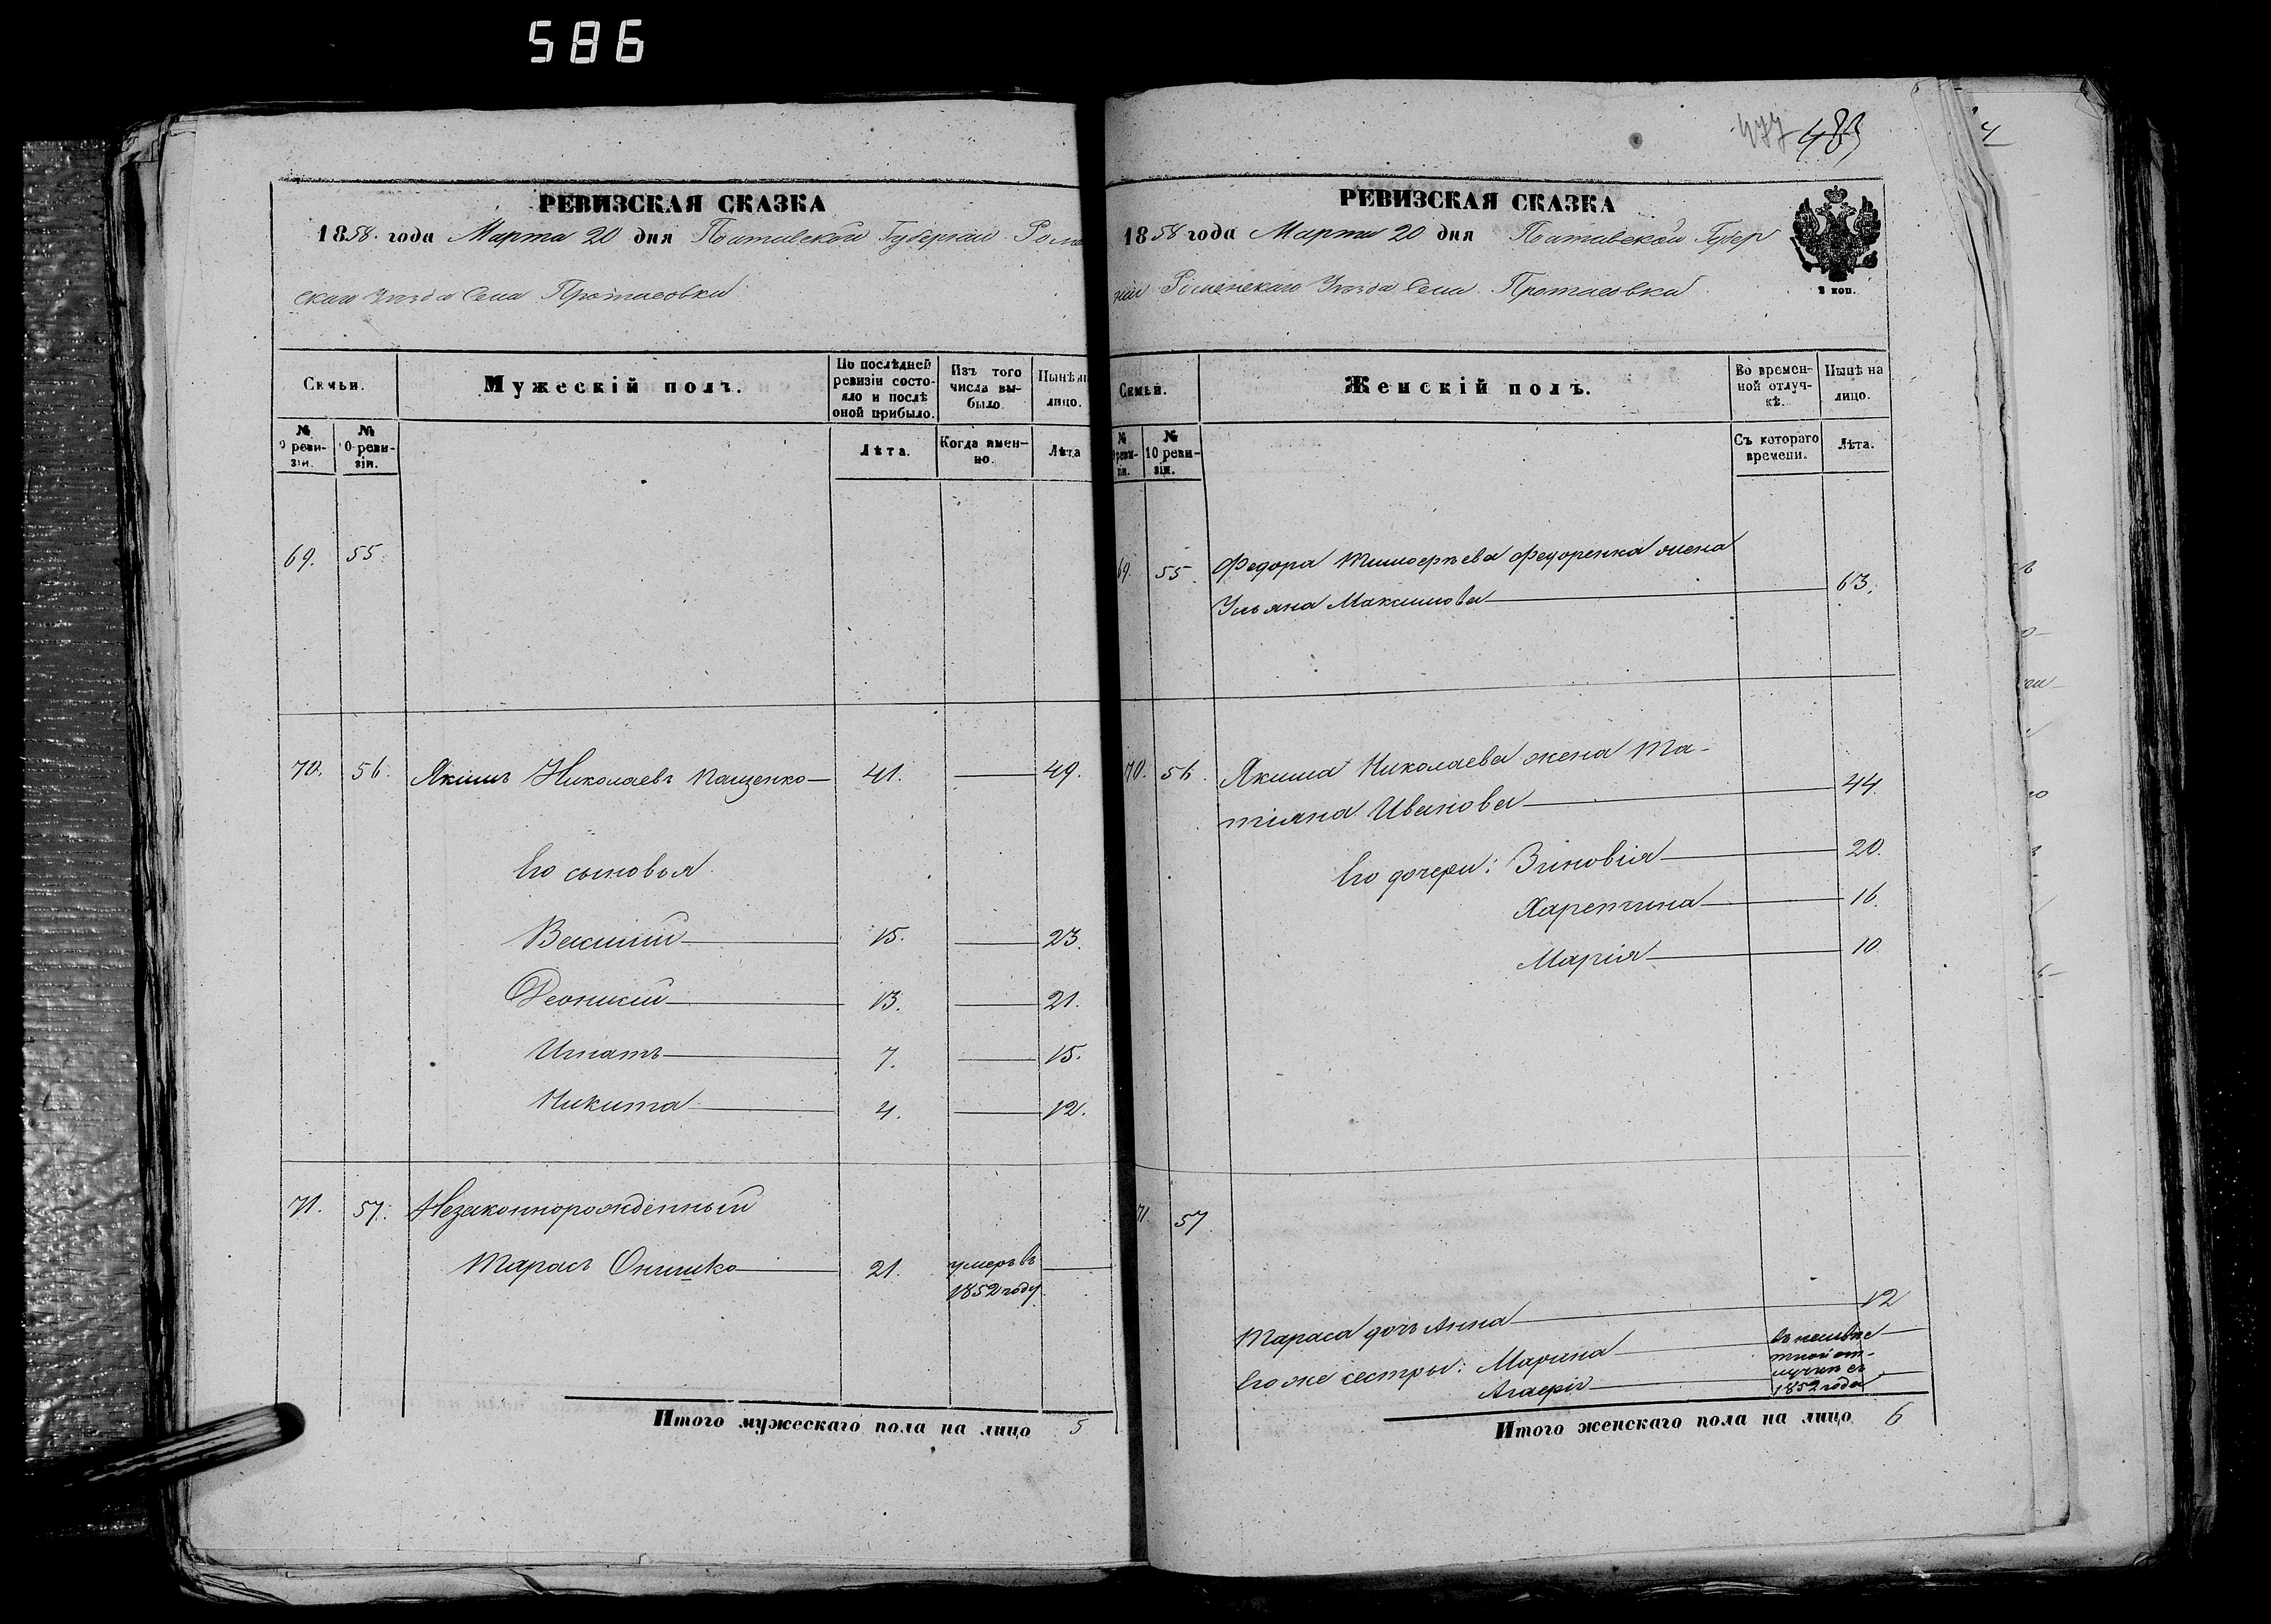 586
РЕВИЗСКАЯ СКАЗКА
1858. года Марта 20 дня Полтавской Губерніи Роме
скаго Уѣзда Села Протасовки
Семьи.
Мужескій полъ.
По послѣдней ревизіи состояло и послѣ оной прибыло.
Изъ того числа выбыло.
Нынѣ на лицо.
№ 9 ревизіи.
№ 10 ревизіи.
Лѣта.
Когда именно.
Лѣта
69. 55.
70. 56. Якимъ Николаевъ Пащенко 41. 49.
Его сыновья
Василий 15. 23.
Леонтий 13. 21.
Игнатъ 7. 15.
Никита 4. 12.
71. 57. Незаконнорожденный
Тарасъ Онишко 21. умеръ въ
1852 году
Итого мужескаго пола на лицо 5
477 483
РЕВИЗСКАЯ СКАЗКА
1858 года Марта 20 дня Полтавской Губер
ніи Роменскаго Уѣзда Села Протасовки
3 коп.
Семьи.
Женскій полъ.
Во временной отлучкѣ.
Нынѣ на лицо.
№ ревизіи.
№ 10 ревизіи.
Съ котораго времени.
Лѣта.
69. 55. Федора Тимофѣева Федоренка жена
Ульяна Максимова 63.
70. 56. Якима Николаева жена Та-
тіяна Иванова 44.
Его дочери: Зиновія 20.
Харетина 16.
Марія 10.
71. 57
Тараса дочь Анна 12
Его же сестры: Марина
Агафія
въ неизвѣс
тной от-
лучкѣ съ
1852 года
Итого женскаго пола на лицо 6